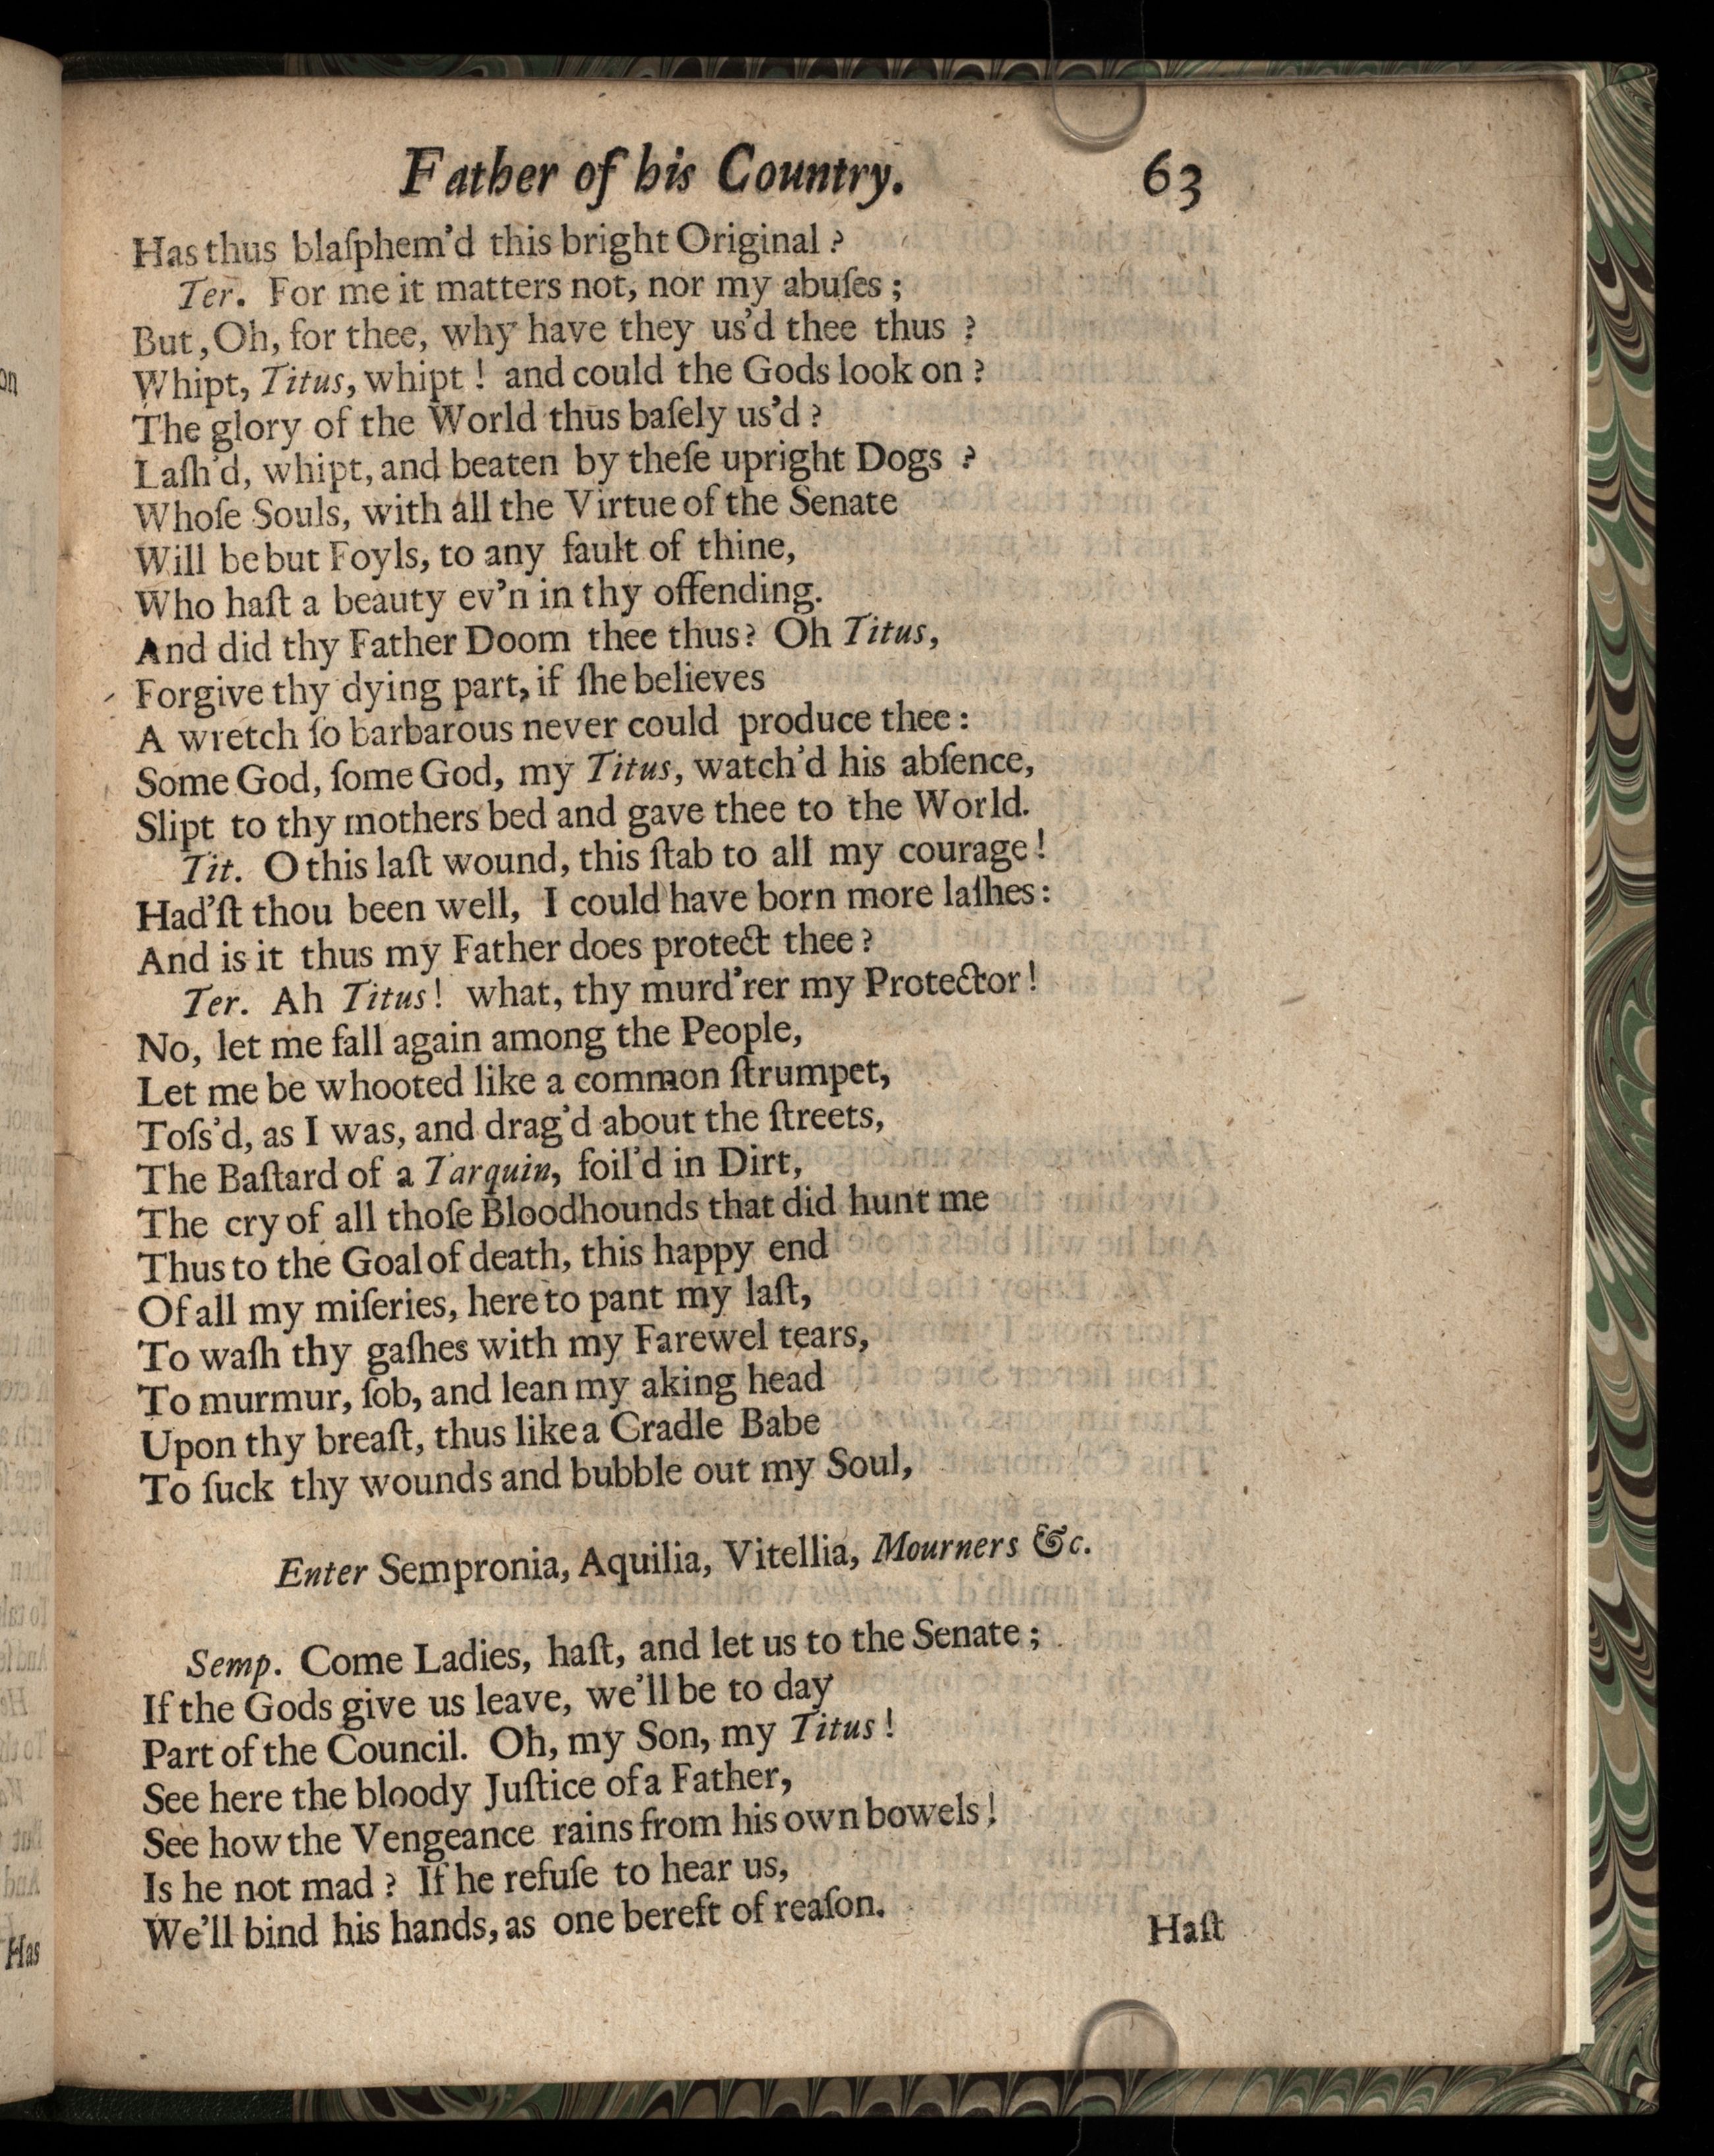 Father of his Country. 63
Has thus blaſphem'd this bright Original ?
Ter. For me it matters not, nor my abuſes ;
But, Oh, for thee, why have they us'd thee thus ?
Whipt, Titus, whipt ! and could the Gods look on ?
The glory of the World thus baſely us'd ?
Laſh'd, whipt, and beaten by theſe upright Dogs ?
Whoſe Souls, with all the Virtue of the Senate
Will be but Foyls, to any fault of thine,
Who haſt a beauty ev'n in thy offending.
And did thy Father Doom thee thus? Oh Titus,
Forgive thy dying part, if ſhe believes
A wretch ſo barbarous never could produce thee :
Some God, ſome God, my Titus, watch'd his abſence,
Slipt to thy mothers bed and gave thee to the World.
Tit. O this laſt wound, this ſtab to all my courage !
Had'ſt thou been well, I could have born more laſhes :
And is it thus my Father does protect thee ?
Ter. Ah Titus ! what, thy murd'rer my Protector !
No, let me fall again among the People,
Let me be whooted like a common ſtrumpet,
Toſs'd, as I was, and drag'd about the ſtreets,
The Baſtard of a Tarquin, foil'd in Dirt,
The cry of all thoſe Bloodhounds that did hunt me
Thus to the Goal of death, this happy end
Of all my miſeries, here to pant my laſt,
To waſh thy gaſhes with my Farewel tears,
To murmur, ſob, and lean my aking head
Upon thy breaſt, thus like a Cradle Babe
To ſuck thy wounds and bubble out my Soul,
Enter Sempronia, Aquilia, Vitellia, Mourners &c.
Semp. Come Ladies, haſt, and let us to the Senate ;
If the Gods give us leave, we'll be to day
Part of the Council. Oh, my Son, my Titus !
See here the bloody Juſtice of a Father,
See how the Vengeance rains from his own bowels !
Is he not mad ? If he refuſe to hear us,
We'll bind his hands, as one bereft of reaſon.
Haſt
Has